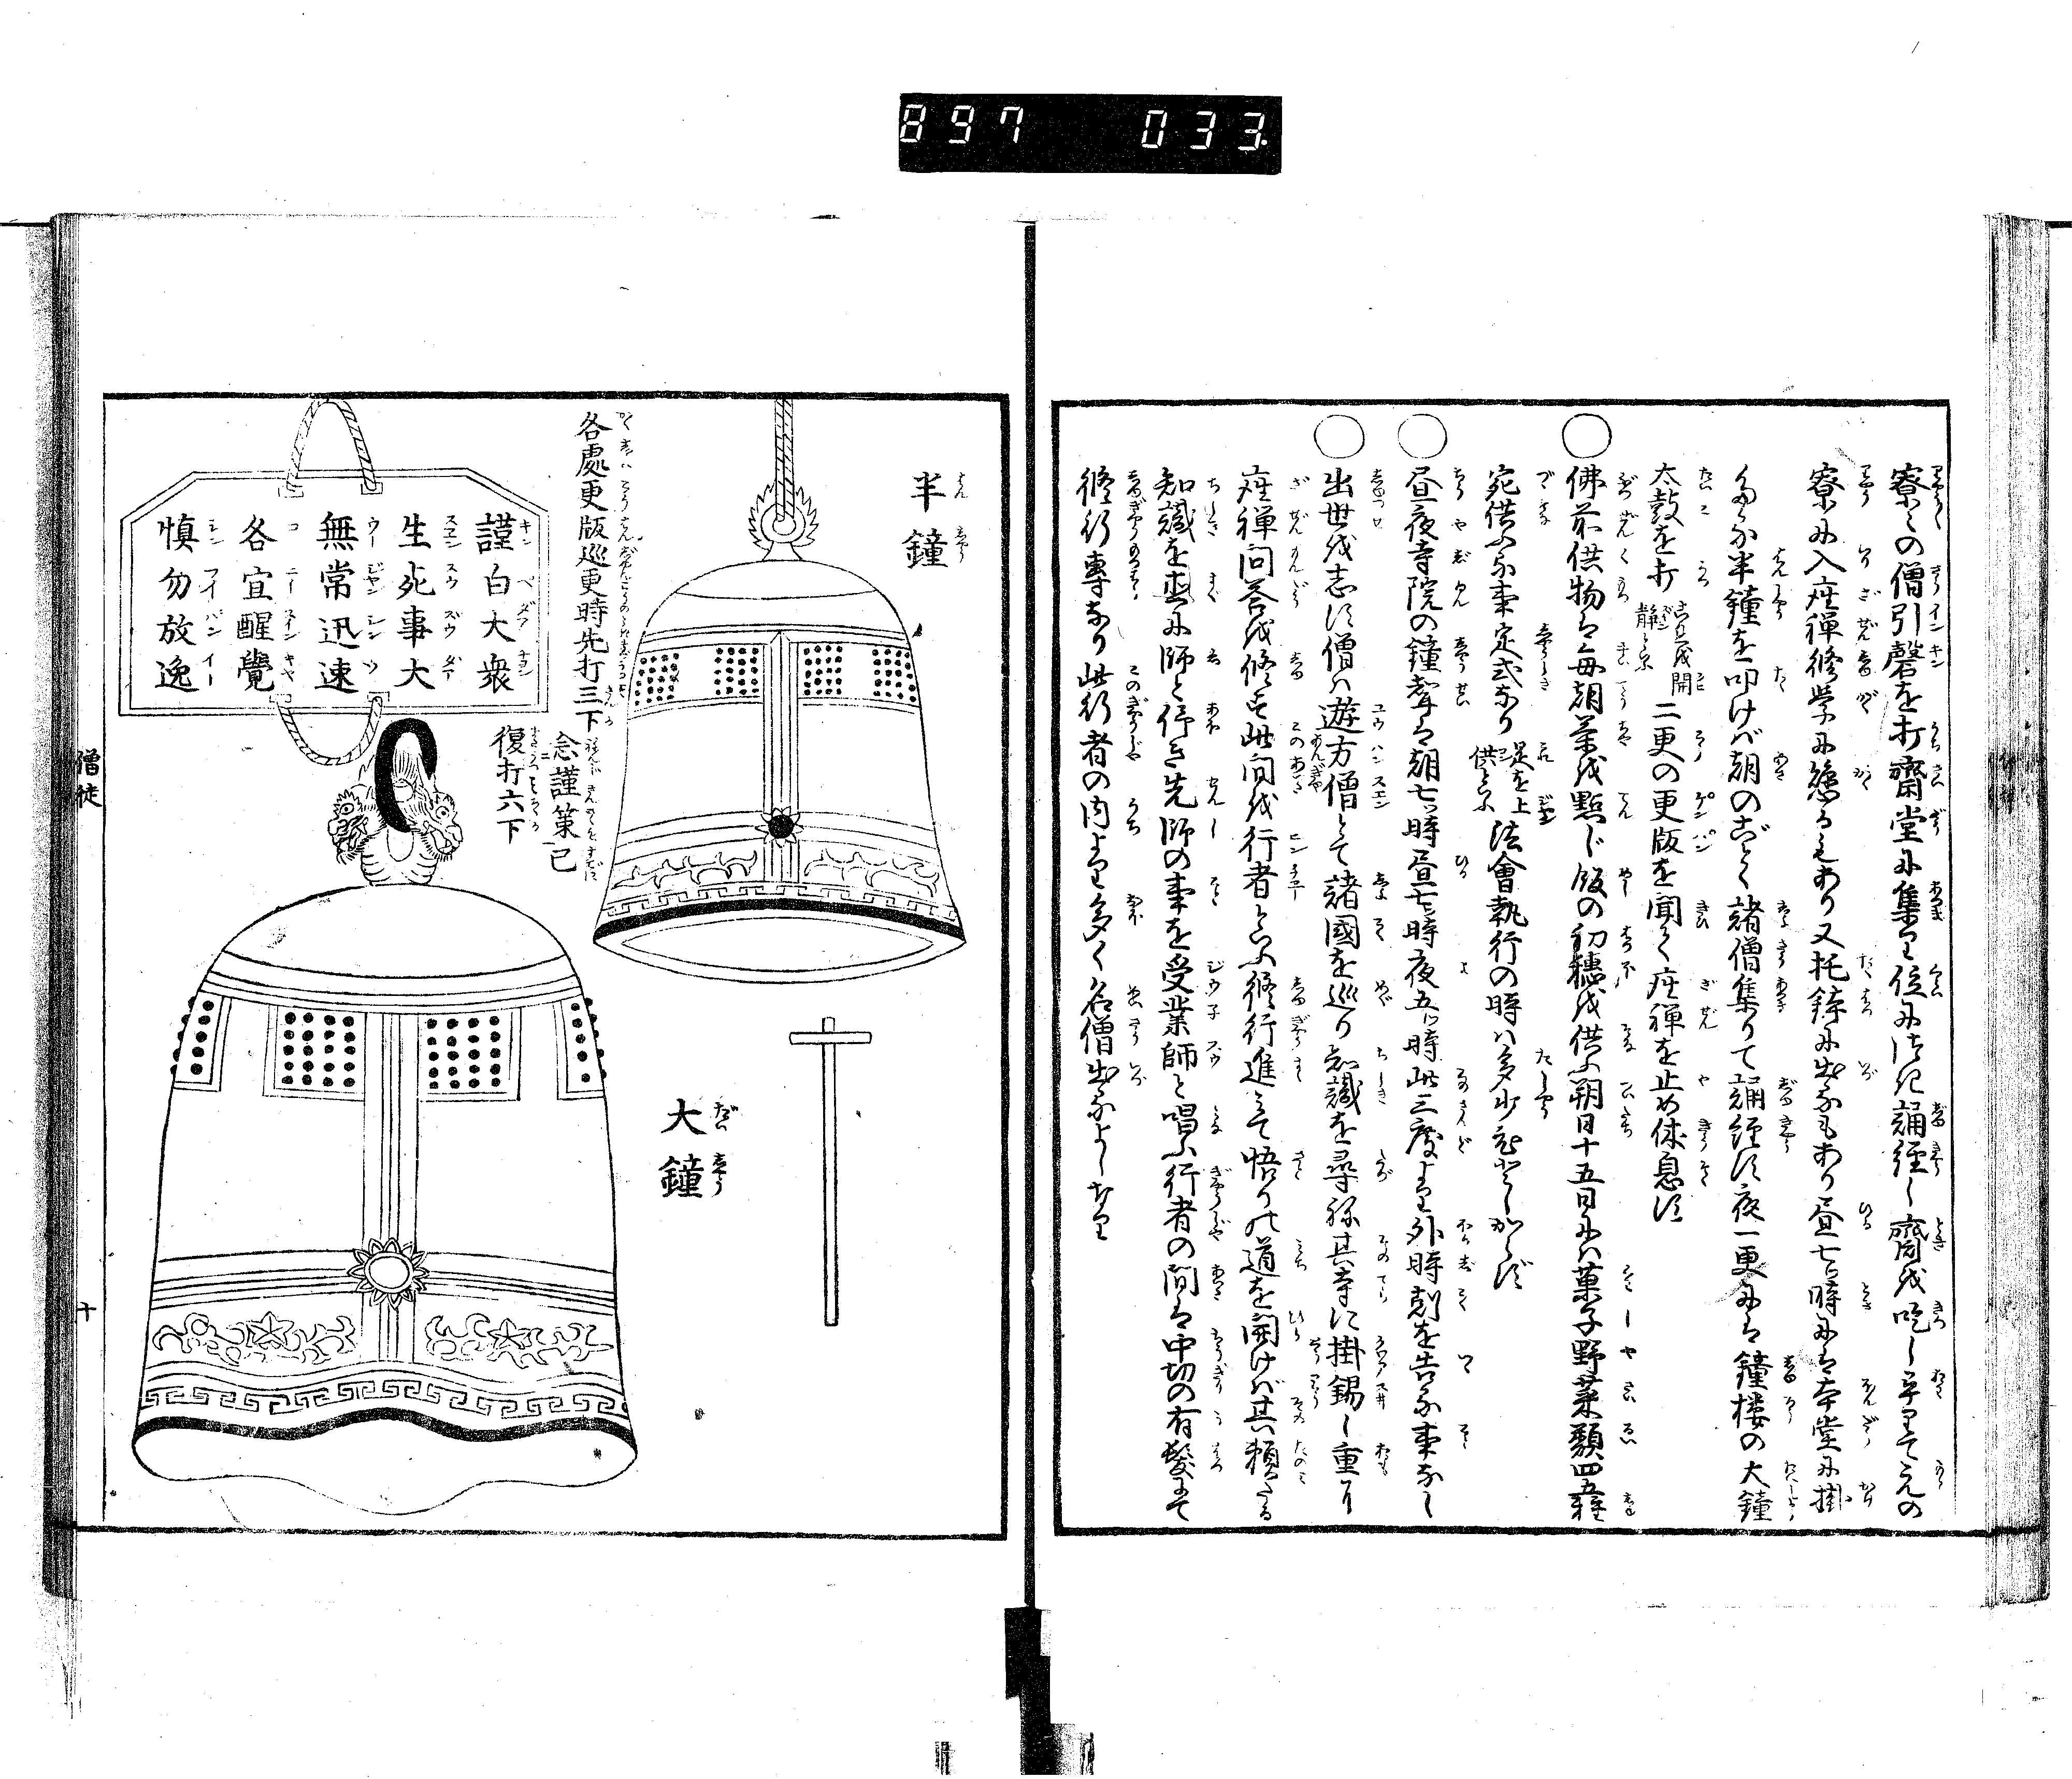 897 033
寮々の僧引磬を打齋堂に集り位に依
誦経し齋を吃し
寮に入座禅修学に懸るもあり又托鉢に出るもあり昼七時には本堂に掛
半鐘を叩けば朝のごとく諸僧集りて誦経す夜一更には鐘楼の大鐘
太鼓を打
静
開
二更の更版を聞く座禅を止め休息す
○佛前供物は毎朝茶を點じ飯の初穂を供ふ朔日十五日には菓子野菜類四五種
宛供ふる事定式なり
是を上
供と云
法會執行の時は多少
○昼夜寺院の鐘聲は朝七時昼七時夜五時此三度より外時刻を告る事なし
○出世を志す僧は遊方僧とて諸國を巡り知識を尋ね其寺に掛錫し重に
座禅問答を修す此間を行者と云ふ修行進みて悟りの道を開けば其頼たる
知識を直に師と仰き先師の事を受業師と唱ふ行者の間は中切の有髪にて
修行専なり此行者の内より多く名僧出るよしなり
半鐘
各處更版巡更時先打三下
念謹策已
復打六下
謹白大衆
生死事大
無常迅速
各宜醒覺
慎勿放逸
大鐘
僧徒
十